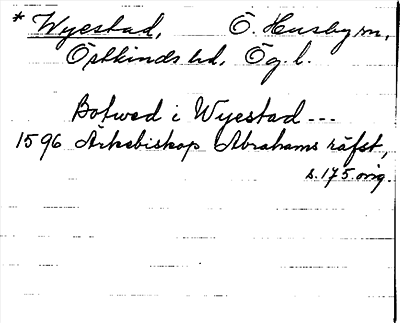 * Wyestad, Ö. Husby sn,
Östkinds hd, Ög. l.
Botwed i Wyestad ---
1596 Ärkebiskop Abrahams räfst,
s. 175. orig.